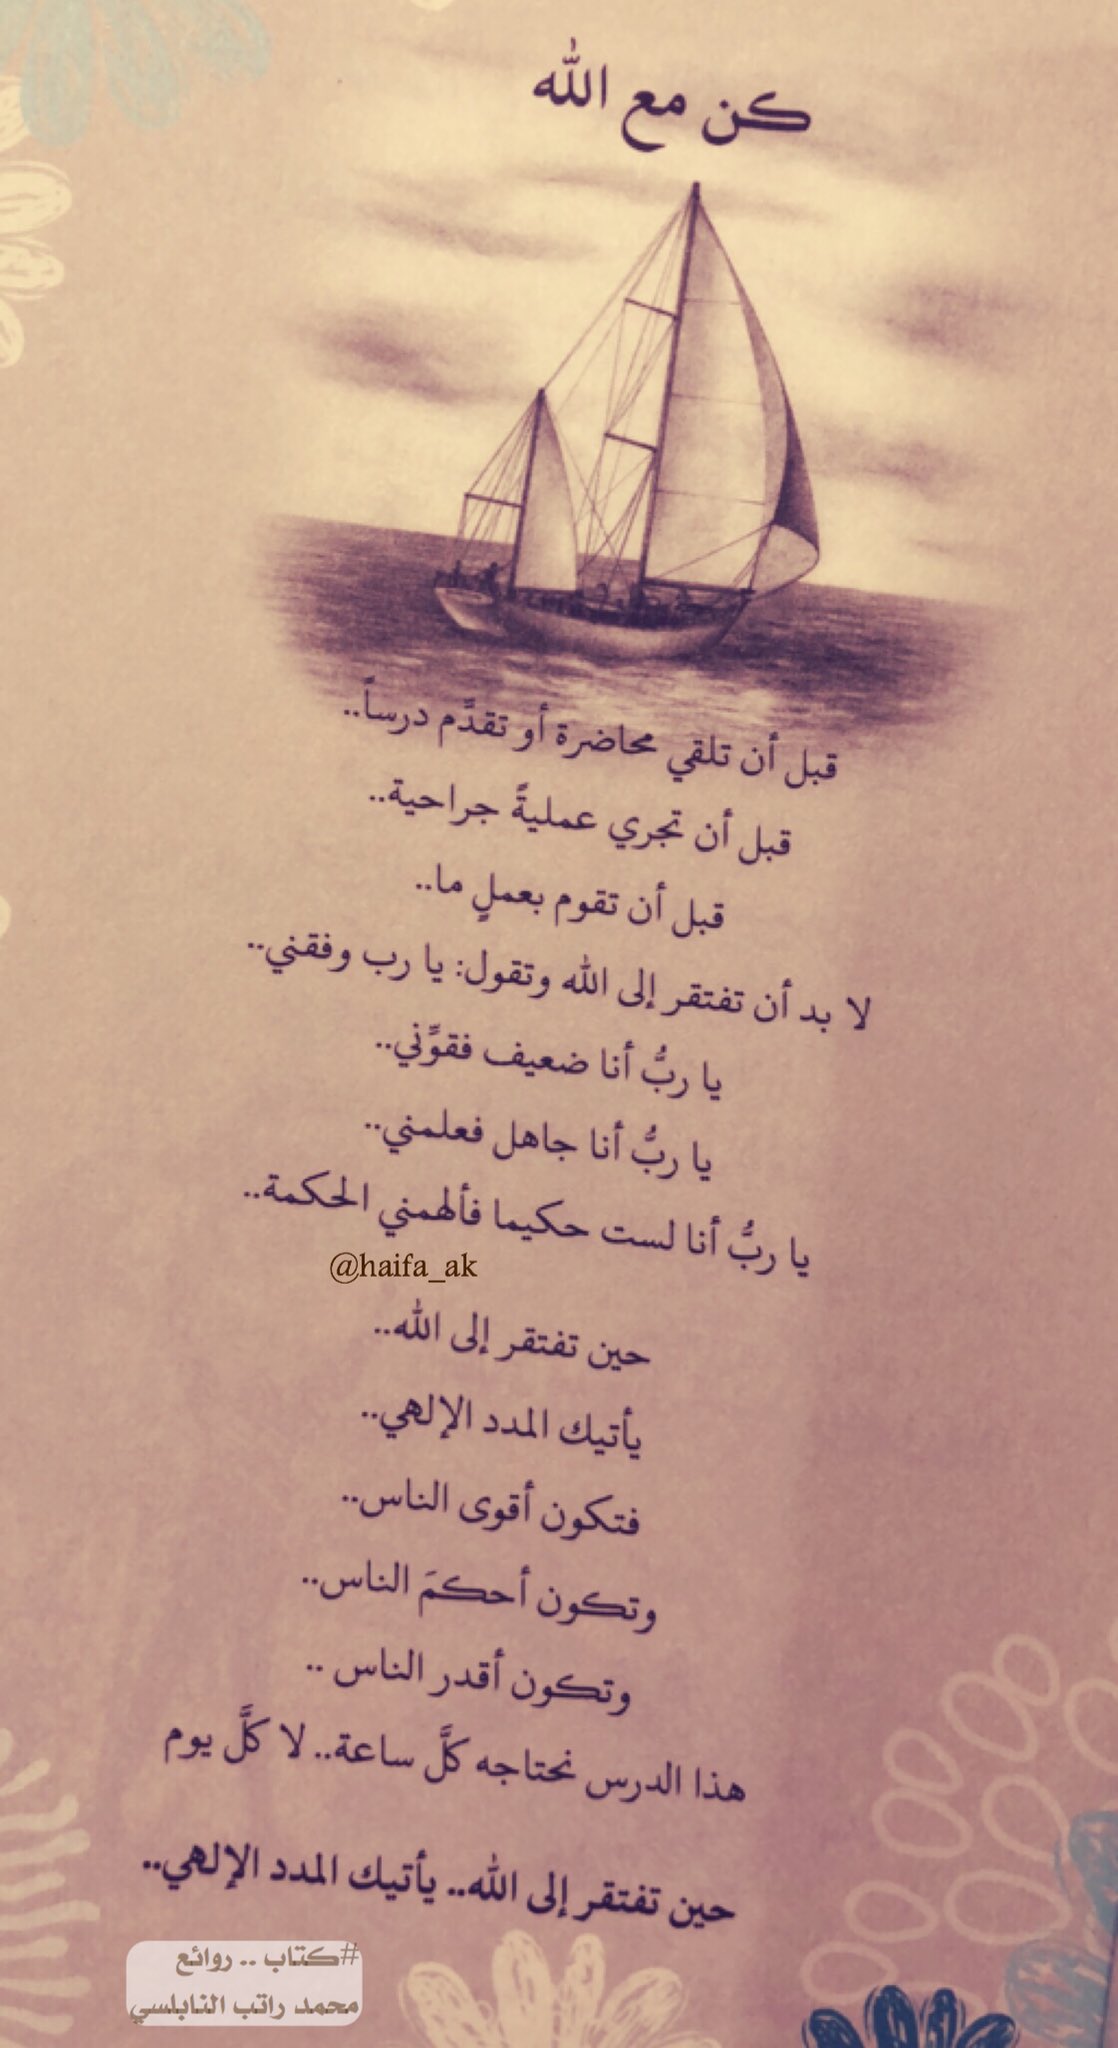 كن مع الله
قبل أن تلقي محاضرة أو تقدِّم درساً..
قبل أن تجري عمليةً جراحية..
قبل أن تقوم بعملٍ ما..
لا بد أن تفتقر إلى الله وتقول: يا رب وفقني..
يا ربُّ أنا ضعيف فقوِّني..
يا ربُّ أنا جاهل فعلمني..
يا ربُّ أنا لست حكيما فألهمني الحكمة..
@haifa_ak
حين تفتقر إلى الله..
يأتيك المدد الإلهي..
فتكون أقوى الناس..
وتكون أحكمَ الناس..
وتكون أقدر الناس ..
هذا الدرس نحتاجه كلَّ ساعة.. لا كلَّ يوم
حين تفتقر إلى الله.. يأتيك المدد الإلهي..
#كتاب .. روائع
محمد راتب النابلسي